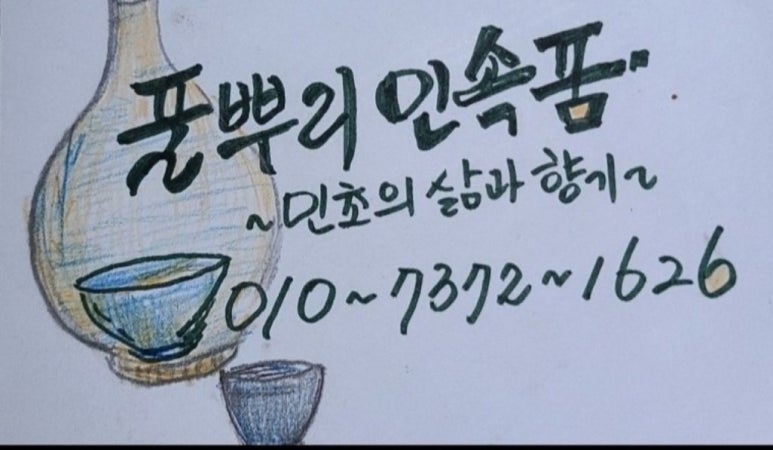 풀뿌리 민속품..
~민초의 삶과 향기~
010~7372~1626